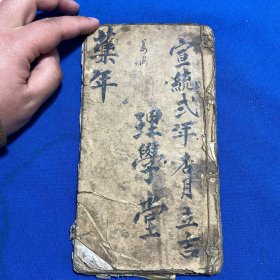 宣統弍年杏月立吉
理學堂
藥年